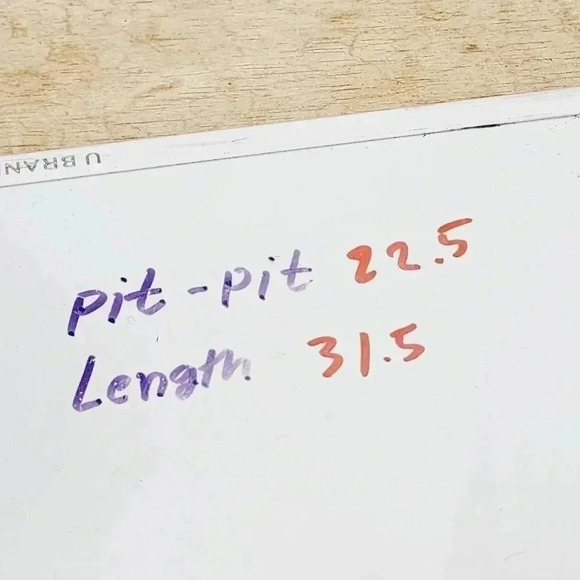 U BRAN
pit-pit 22.5
Length 31.5